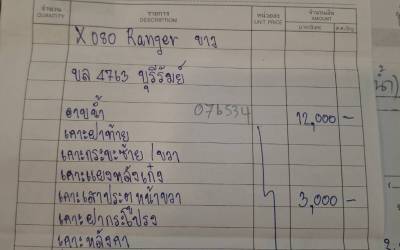 จำนวน รายการ หน่วยละ จำนวนเงิน
QUANTITY DESCRIPTION UNIT PRICE AMOUNT
XO80 Ranger ขาว
บล 4763 บุรีรัมย์
อาบน้ำ 076534 12,000 -
เคาะฝาท้าย
เคาะกระบะซ้าย / ขวา
เคาะแผงหลังเก๋ง
เคาะเสาประตูหน้าขวา 3,000 -
เคาะฝากระโปรง
เคาะหลังคา